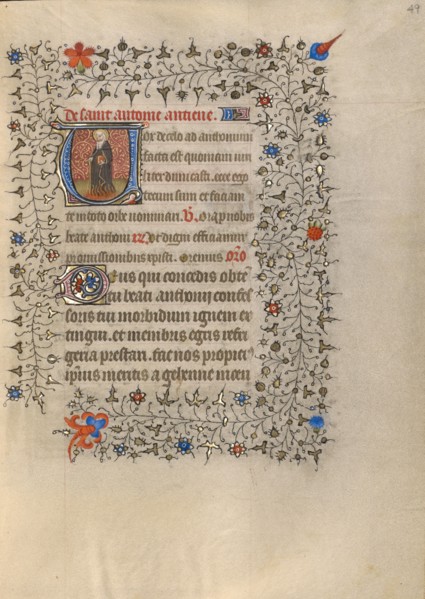 49
De saint antoine antiene.
Vox de celo ad anthonium
facta est quoniam uiri
liter dimicasti. ecce ego
tecum sum et faciam
te in toto orbe nominari. V. Ora pro nobis
beate anthoni R. Ut digni efficiamur
promissionibus xpisti. Oremus oro
Deus qui concedis obte
tu beati anthonij confes
soris tui morbidum ignem ex
tingui. et membris egris refri
geria prestari. fac nos propici
ipsius meritis a gehenne incen